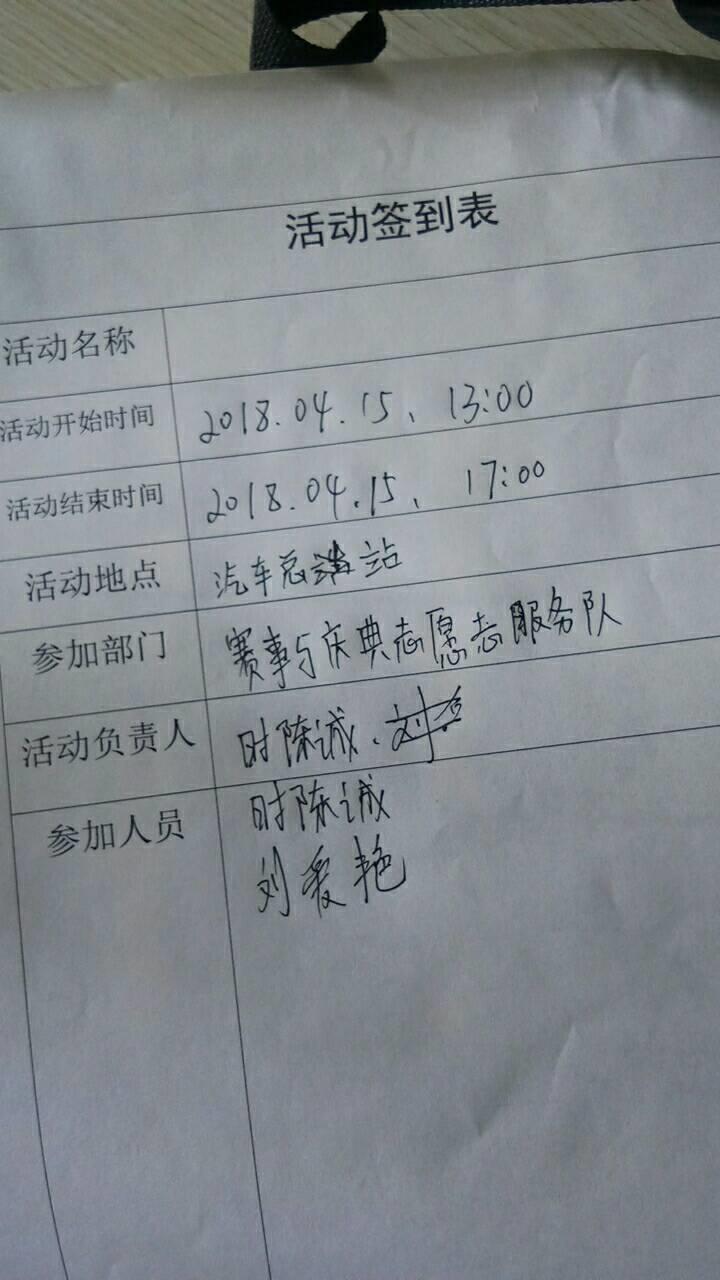 活动签到表
活动名称
活动开始时间 2018.04.15、13:00
活动结束时间 2018.04.15、17:00
活动地点 汽车总站
参加部门 赛事与庆典志愿志服务队
活动负责人 时陈诚、
参加人员 时陈诚
刘爱艳